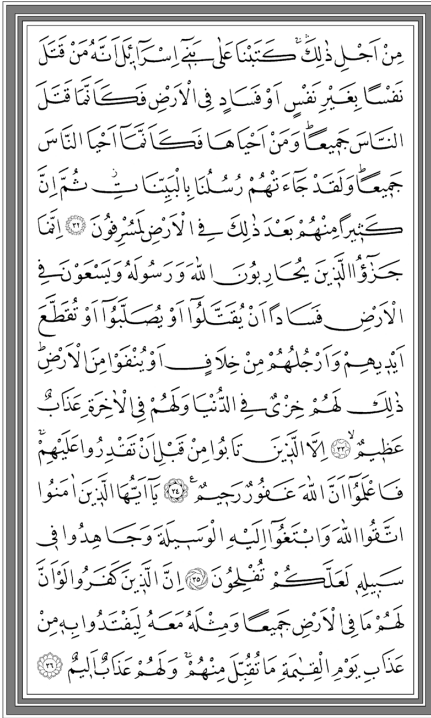 مِنْ اَجْلِ ذٰلِكَۚۛ كَتَبْنَا عَلٰى بَنٖٓي اِسْرَٓائٖلَ اَنَّهُ مَنْ قَتَلَ
نَفْسًا بِغَيْرِ نَفْسٍ اَوْ فَسَادٍ فِي الْاَرْضِ فَكَاَنَّمَا قَتَلَ
النَّاسَ جَمٖيعًاؕ وَمَنْ اَحْيَاهَا فَكَاَنَّمَٓا اَحْيَا النَّاسَ
جَمٖيعًاؕ وَلَقَدْ جَٓاءَتْهُمْ رُسُلُنَا بِالْبَيِّنَاتِؗ ثُمَّ اِنَّ
كَثٖيرًا مِنْهُمْ بَعْدَ ذٰلِكَ فِي الْاَرْضِ لَمُسْرِفُونَ ﴿٣٢﴾ اِنَّمَا
جَزٰٓؤُا الَّذٖينَ يُحَارِبُونَ اللّٰهَ وَرَسُولَهُ وَيَسْعَوْنَ فِي
الْاَرْضِ فَسَادًا اَنْ يُقَتَّلُٓوا اَوْ يُصَلَّبُٓوا اَوْ تُقَطَّعَ
اَيْدٖيهِمْ وَاَرْجُلُهُمْ مِنْ خِلَافٍ اَوْ يُنْفَوْا مِنَ الْاَرْضِؕ
ذٰلِكَ لَهُمْ خِزْيٌ فِي الدُّنْيَا وَلَهُمْ فِي الْاٰخِرَةِ عَذَابٌ
عَظٖيمٌۙ ﴿٣٣﴾ اِلَّا الَّذٖينَ تَابُوا مِنْ قَبْلِ اَنْ تَقْدِرُوا عَلَيْهِمْۚ
فَاعْلَمُٓوا اَنَّ اللّٰهَ غَفُورٌ رَحٖيمٌࣖ ﴿٣٤﴾ يَٓا اَيُّهَا الَّذٖينَ اٰمَنُوا
اتَّقُوا اللّٰهَ وَابْتَغُٓوا اِلَيْهِ الْوَسٖيلَةَ وَجَاهِدُوا فٖي
سَبٖيلِهٖ لَعَلَّكُمْ تُفْلِحُونَ ﴿٣٥﴾ اِنَّ الَّذٖينَ كَفَرُوا لَوْ اَنَّ
لَهُمْ مَا فِي الْاَرْضِ جَمٖيعًا وَمِثْلَهُ مَعَهُ لِيَفْتَدُوا بِهٖ مِنْ
عَذَابِ يَوْمِ الْقِيٰمَةِ مَا تُقُبِّلَ مِنْهُمْۚ وَلَهُمْ عَذَابٌ اَلٖيمٌ ﴿٣٦﴾